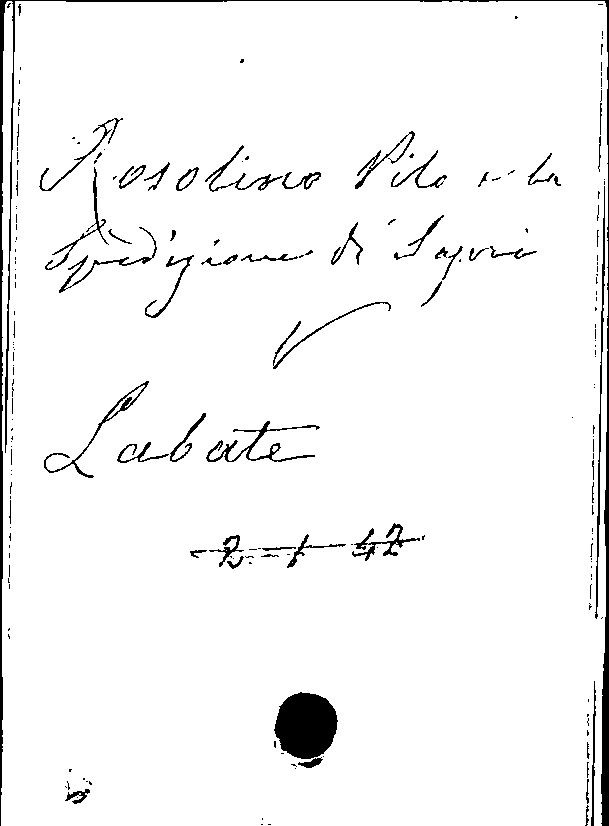 Rosolino Pilo e la
Spedizione di Sapri
Labate
2 - 1 42